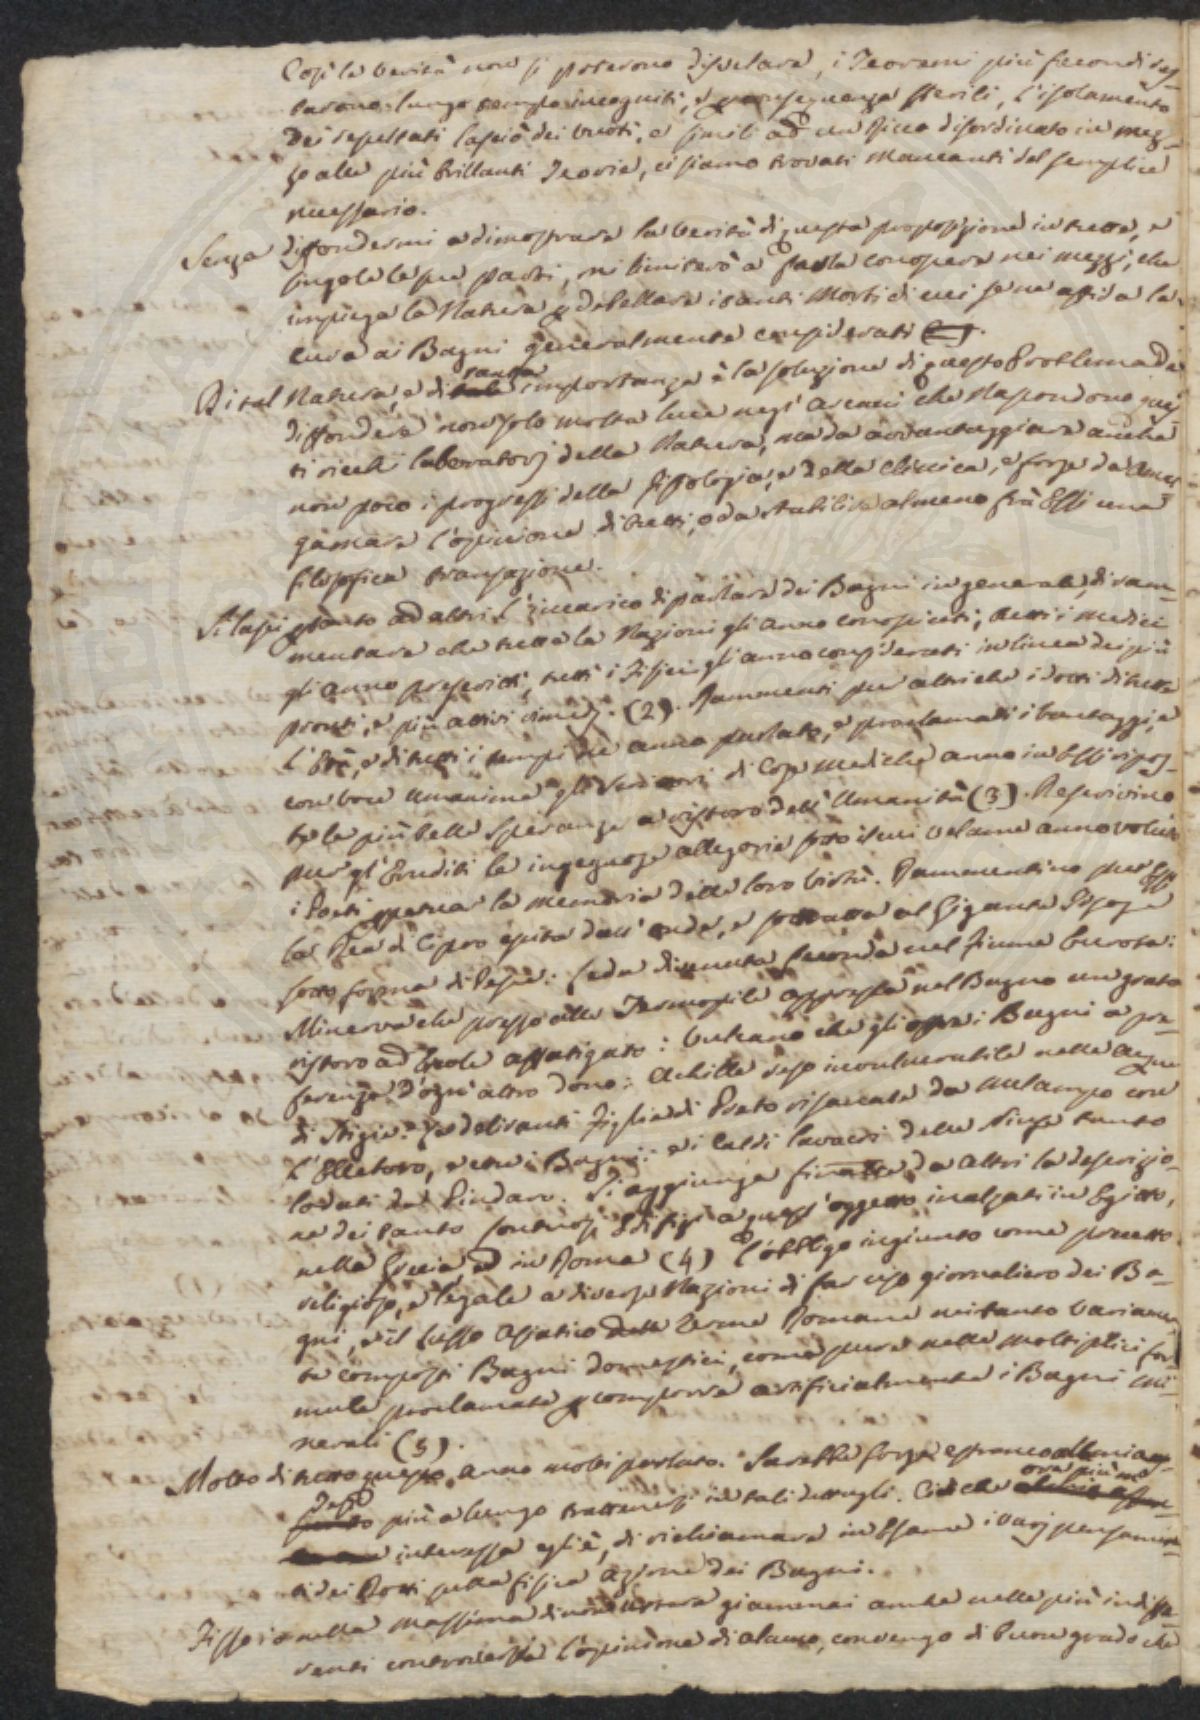 Così le verità non si poterono disvelare, i Teoremi più fecondi res-
tarono lungo tempo incogniti, e per conseguenza sterili, l'isolamento
dei resultati lasciò dei vuoti, e simili ad un Ricco disordinato in mez-
zo alle più brillanti Teorie, ci siamo trovati mancanti del semplice
necessario.
Senza diffondermi a dimostrare la verità di questa proposizione in tutte, e
singole le sue parti, mi limiterò a farla conoscere nei mezzi, che
impiega la Natura per debellare i tanti Morbi di cui se ne affida la
cura ai Bagni generalmente considerati
Di tal Natura, e di tanta importanza è la soluzione di questo Problema da
diffondere non solo molta luce negl'arcani che nascondono ques-
ti ricchi laboratorj della Natura, ma da avvantaggiare anche
non poco i progressi della Fisiologia, e della Clinica, e forse da amal-
gamare l'opinione di tutti, o da stabilire almeno frà Essi una
filosofica transazione.
Si lasci pertanto ad altri l'incarico di parlare dei Bagni in generale, di ram-
mentare che tutte le Nazioni gli anno conosciuti, tutti i medici
gli anno prescritti, tutti i Fisici gli anno considerati in linea dei più
pronti, e più attivi rimedj. (2). Rammenti pur altri che i dotti di tutte
l'Età, e di tutti i tempi ne anno parlato, e proclamati i vantaggi, e
con voce unanime gli Scrittori di Cose mediche anno in Essi ripos-
te le più belle speranze a ristoro dell'Umanità (3). Descrivino
pur gl'Eruditi le ingegnose allegorie sotto il cui velame anno voluto
i Poeti la memoria delle loro virtù. Rammentino pur Essi
la Dea di Cipro uscita dall'onde, e sottratta al Gigante
sotto forma di Pesce: Leda divenuta feconda nel Fiume Eurota:
Minerva che presso alle Termopile appresta nel Bagno un grato
ristoro ad Ercole affatigato: Vulcano che gli offre i Bagni a pre-
ferenza d'ogni altro dono: Achille reso invulnerabile nelle acque
di Stigie: le deliranti Figlie di Preto risanate da Melampo con
l'Elleboro, e con i Bagni: e i caldi lavacri delle Ninfe tanto
lodati da Pindaro. Si aggiunga finalmente da altri la descrizio-
ne dei tanto sontuosi Edifizi a quest'oggetto inalzati in Egitto,
nella Grecia ed in Roma (4) l'obbligo ingiunto come precetto
religioso, e legale a diverse Nazioni di far uso giornaliero dei Ba-
gni, e il lusso Asiatico delle Terme Romane nei tanto variamen-
te composti Bagni domestici, come pure nelle moltiplici for-
mule proclamate per comporre artificialmente i Bagni mi-
nerali (5).
Molto di tutto questo anno molti parlato. Sarebbe forse estraneo
più a lungo trattenersi in tali dettagli. Ciò che ora più
interessa egli è, di richiamare in Esame i varj pensamen-
ti dei Dotti sulla fisica azione dei Bagni.
Fisso io nella massima di non urtare giammai anche nelle più indiffe-
renti controversie l'opinione di alcuno, convengo di buon grado che